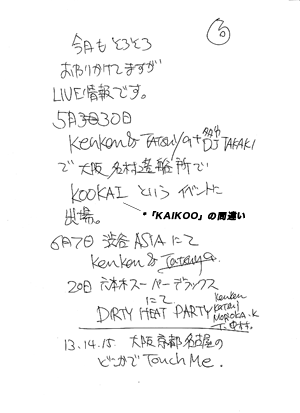 ⑥
今月も そろそろ
おわりかけてますが
LIVE情報です。
5月30日
KenKen & Tatsuya + DJ TAKAKI
で 大阪 名村造船所で
KOOKAI という イベントに
出場。
*「KAIKOO」の間違い
6月7日 渋谷 ASIA にて
KenKen & Tatsuya.
20日 六本木スーパーデラックス
にて
DIRTY HEAT PARTY
KenKen
MOROKA.K
T.中村.
13.14.15. 大阪 京都 名古屋の
どこかで Touch Me.